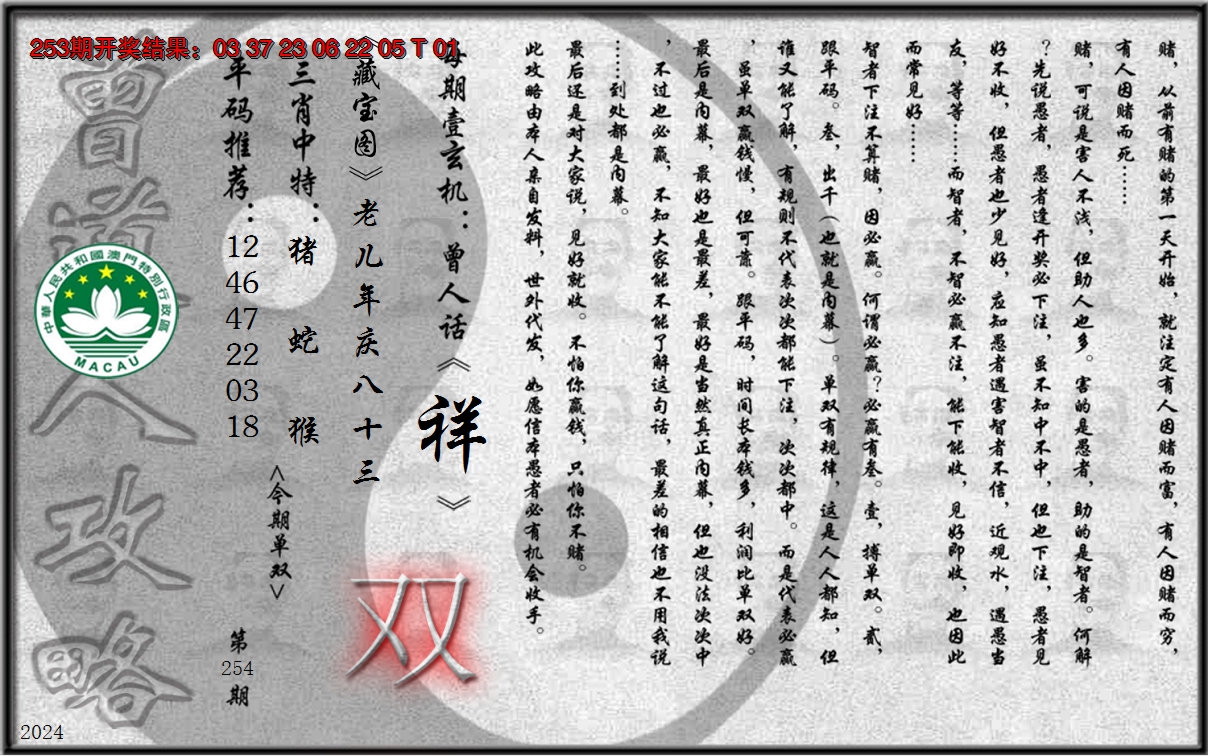 253期开奖结果：03 37 23 06 22 05 T 01
赌，从前有赌的第一天开始，就注定有人因赌而富，有人因赌而穷，
有人因赌而死……
赌，可说是害人不浅，但助人也多。害的是愚者，助的是智者。何解
？先说愚者，愚者逢开奖必下注，虽不知中不中，但也下注，愚者见
好不收，但愚者也少见好，应知愚者遇害智者不信，近观水，遇愚当
友，等等……而智者，不智必赢不注，能下能收，见好即收，也因此
而常见好……
智者下注不算赌，因必赢。何谓必赢？必赢有叁。壹，搏单双。贰，
跟平码。叁，出千（也就是内幕）。单双有规律，这是人人都知，但
谁又能了解，有规则不代表次次都能下注，次次都中。而是代表必赢
，虽单双赢钱慢，但可靠。跟平码，时间长本钱多，利润比单双好。
最后是内幕，最好也是最差，最好是当然真正内幕，但也没法次次中
，不过也必赢，不知大家能不能了解这句话，最差的相信也不用我说
……到处都是内幕。
最后还是对大家说，见好就收。不怕你赢钱，只怕你不赌。
此攻略由本人亲自发料，世外代发，如愿信本愚者必有机会收手。
每期壹玄机：曾人话《祥》
《藏宝图》老儿年庆八十三
双
三肖中特：猪 蛇 猴
<今期单双>
平码推荐：12 46 47 22 03 18
第254期
曾道人攻略
中華人民共和國澳門特別行政區
MACAU
2024